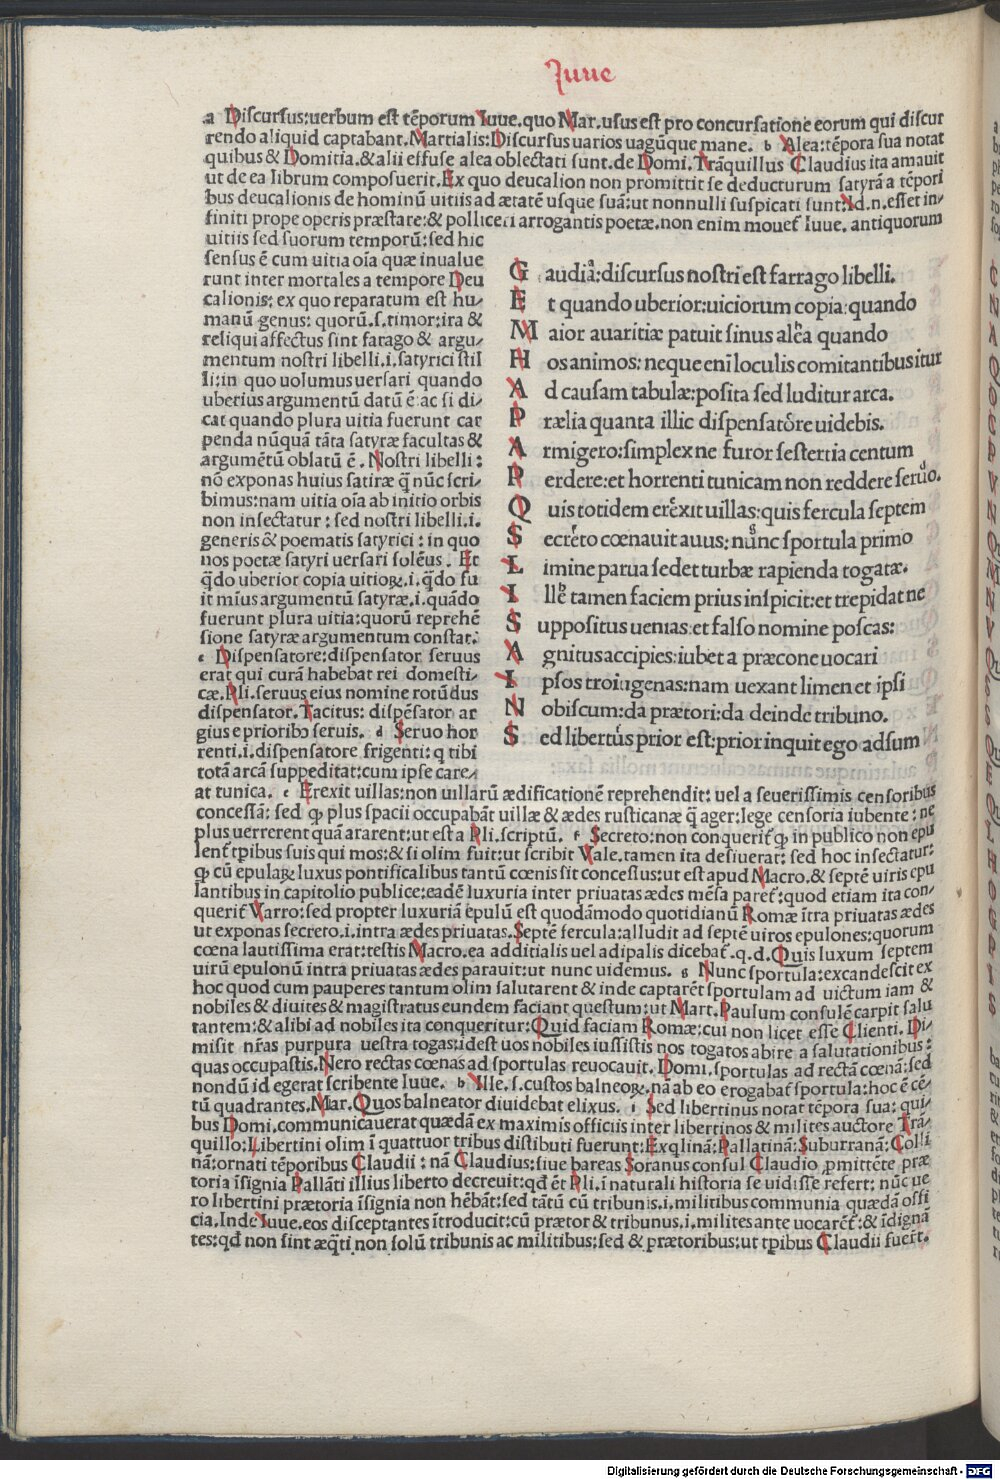 Juue
a Diſcurſus:uerbum eſt tēporum Iuue.quo Mar.uſus eſt pro concurſatione eorum qui diſcur
rendo aliquid captabant.Martialis:Diſcurſus uarios uagūque mane. b Alea:tēpora ſua notat
quibus & Domitia.& alii effuſe alea oblectati ſunt.de Domi.Trāquillus Claudius ita amauit
ut de ea librum compoſuerit.Ex quo deucalion non promittit ſe deducturum ſatyrā a tēpori
bus deucalionis de hominū uitiis ad ætatē uſque ſuā:ut nonnulli ſuſpicati ſunt:Id.n.eſſet in⸗
finiti prope operis præſtare:& polliceri arrogantis poetæ.non enim mouet᷑ Iuue. antiquorum
uitiis ſed ſuorum temporū:ſed hic
ſenſus ē cum uitia oīa quæ inualue
runt inter mortales a tempore Deu
calionis: ex quo reparatum eſt hu⸗
manū genus: quorū.ſ.timor:ira &
reliqui affectus ſint farago & argu⸗
mentum noſtri libelli.i.ſatyrici ſtil
li:in quo uolumus uerſari quando
uberius argumentū datū ē:ac ſi di⸗
cat quando plura uitia fuerunt car
penda nūquā tāta ſatyræ facultas &
argumētū oblatū ē. Noſtri libelli:
nō exponas huius ſatiræ q̄ nūc ſcri⸗
bimus:nam uitia oīa ab initio orbis
non inſectatur: ſed noſtri libelli.i.
generis & poematis ſatyrici: in quo
nos poetæ ſatyri uerſari ſolēus. Et
q̄do uberior copia uitioꝝ.i.q̄do fu
it mīus argumentū ſatyræ.i.quādo
fuerunt plura uitia:quorū reprehē
ſione ſatyræ argumentum conſtat.
c Diſpenſatore:diſpenſator ſeruus
erat qui curā habebat rei domeſti⸗
cæ.Pli.ſeruus eius nomine rotūdus
diſpenſator.Tacitus: diſpēſator ar
gius e prioribo ſeruis. d Seruo hor
renti.i.diſpenſatore frigenti: q tibi
totā arcā ſuppeditat:cum ipſe care⸗
G audia:diſcurſus noſtri eſt farrago libelli.
E t quando uberior:uiciorum copia:quando
M aior auaritiæ patuit ſinus alea quando
H os animos: neque eni loculis comitantibus itur
A d cauſam tabulæ:poſita ſed luditur arca.
P rælia quanta illic diſpenſatore uidebis.
A rmigero:ſimplex ne furor ſeſtertia centum
P erdere:et horrenti tunicam non reddere ſeruo.
Q uis totidem erexit uillas:quis fercula ſeptem
S ecreto cœnauit auus: nunc ſportula primo
L imine parua ſedet turbæ rapienda togatæ.
I lle tamen faciem prius inſpicit:et trepidat ne
S uppoſitus uenias:et falſo nomine poſcas:
A gnitus accipies:iubet a præcone uocari
I pſos troiugenas:nam uexant limen et ipſi
N obiſcum:da prætori:da deinde tribuno.
S ed libertus prior eſt:prior inquit ego adſum
at tunica. e Erexit uillas:non uillarū ædificationē reprehendit: uel a ſeueriſſimis cenſoribus
conceſſā: ſed ꝙ plus ſpacii occupabāt uillæ & ædes ruſticanæ q̄ ager:lege cenſoria iubente: ne
plus uerrerent quā ararent:ut eſt a Pli.ſcriptū. f Secreto:non conquerit᷑ ꝙ in publico non epu
lent᷑ tꝑibus ſuis qui mos:& ſi olim fuit:ut ſcribit Vale.tamen ita deſiuerat: ſed hoc inſectatur:
ꝙ cū epulaꝝ luxus pontificalibus tantū cœnis ſit conceſſus:ut eſt apud Macro.& ſeptē uiris epu
lantibus in capitolio publice:eadē luxuria inter priuatas ædes mēſa paret᷑:quod etiam ita con⸗
querit᷑ Varro:ſed propter luxuriā epulū eſt quodāmodo quotidianū Romæ ītra priuatas ædes
ut exponas ſecreto.i.intra ædes priuatas.Septē fercula:alludit ad ſeptē uiros epulones:quorum
cœna lautiſſima erat:teſtis Macro.ea additialis uel adipalis dicebat᷑.q.d.Quis luxum ſeptem
uirū epulonū intra priuatas ædes parauit:ut nunc uidemus. g Nunc ſportula:excandeſcit ex
hoc quod cum pauperes tantum olim ſalutarent & inde captarēt ſportulam ad uictum iam &
nobiles & diuites & magiſtratus eundem faciant queſtum:ut Mart.Paulum conſulē carpit ſalu
tantem:& alibi ad nobiles ita conqueritur:Quid faciam Romæ:cui non licet eſſe Clienti. Di⸗
miſit nr̄as purpura ueſtra togas:ideſt uos nobiles iuſſiſtis nos togatos abire a ſalutationibus:
quas occupaſtis.Nero rectas cœnas ad ſportulas reuocauit. Domi.ſportulas ad rectā cœnā:ſed
nondū id egerat ſcribente Iuue. h Ille.ſ.cuſtos balneoꝝ.nā ab eo erogabat᷑ ſportula:hoc ē cē⸗
tū quadrantes.Mar.Quos balneator diuidebat elixus. i Sed libertinus notat tēpora ſua: qui⸗
bus Domi.communicauerat quædā ex maximis officiis inter libertinos & milites auctore Trā⸗
quillo:Libertini olim ī quattuor tribus diſtibuti fuerunt:Exqlinā:Pallatinā:Suburranā:Colli
nā:ornati tēporibus Claudii: nā Claudius:ſiue bareas Soranus conſul Claudio ꝑmittēte præ
toria īſignia Pallāti illius liberto decreuit:qd̄ ēt Pli.ī naturali hiſtoria ſe uidiſſe refert: nūc ue
ro libertini prætoria īſignia non hēbāt:ſed tātū cū tribunis.i.militibus communia quædā offi
cia.Inde Iuue.eos diſceptantes ītroducit:cū prætor & tribunus.i.milites ante uocarēt᷑:& īdignā
tes:qd̄ non ſint æq̄ti non ſolū tribunis ac militibus:ſed & prætoribus:ut tꝑibus Claudii fuert.
Digitalisierung gefördert durch die Deutsche Forschungsgemeinschaft - DFG